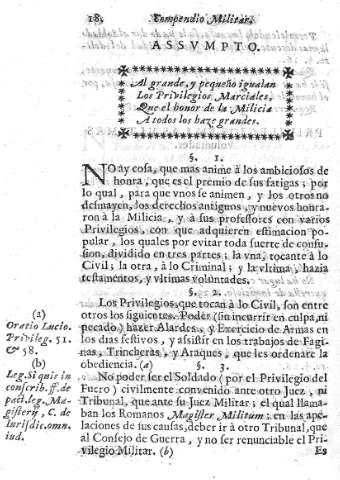 18. Compendio Militar.
ASSVMPTO.
Al grande, y pequeño igualan
Los Privilegios Marciales,
Que el honor de la Milicia
A todos los haze grandes.
§. 1.
NO ay cosa, que mas anime à los ambiciosos de
honra, que es el premio de sus fatigas; por
lo qual, para que vnos se animen, y los otros no
desmayen, los derechos antiguos, y nuevos honra-
ron à la Milicia, y à sus professores con varios
Privilegios, con que adquieren estimacion po-
pular, los quales por evitar toda suerte de confu-
sion, dividido en tres partes; la vna, tocante à lo
Civil; la otra, à lo Criminal; y la vltima, hazia
testamentos, y vltimas voluntades.
§. 2.
Los Privilegios, que tocan à lo Civil, son entre
otros los siguientes. Poder (sin incurrir en culpa, ni
pecado) hazer Alardes, y Exercicio de Armas en
los dias festivos, y assistir en los trabajos de Fagi-
nas, Trincheras, y Ataques, que les ordenare la
obediencia. (a) §. 3.
No poder ser el Soldado (por el Privilegio del
Fuero) civilmente convenido ante otro Juez, ni
Tribunal, que ante su Juez Militar; el qual llama-
ban los Romanos Magister Militum: en las ape-
laciones de sus causas, deber ir à otro Tribunal, que
al Consejo de Guerra, y no ser renunciable el Pri-
vilegio Militar. (b) Es
(a)
Oratio Lucio.
Privileg. 51.
& 58.
(b)
Leg. Si quis in
conscrib. ff. de
pact. leg. Ma-
gisterij, C. de
Iurisdic. omn.
iud.